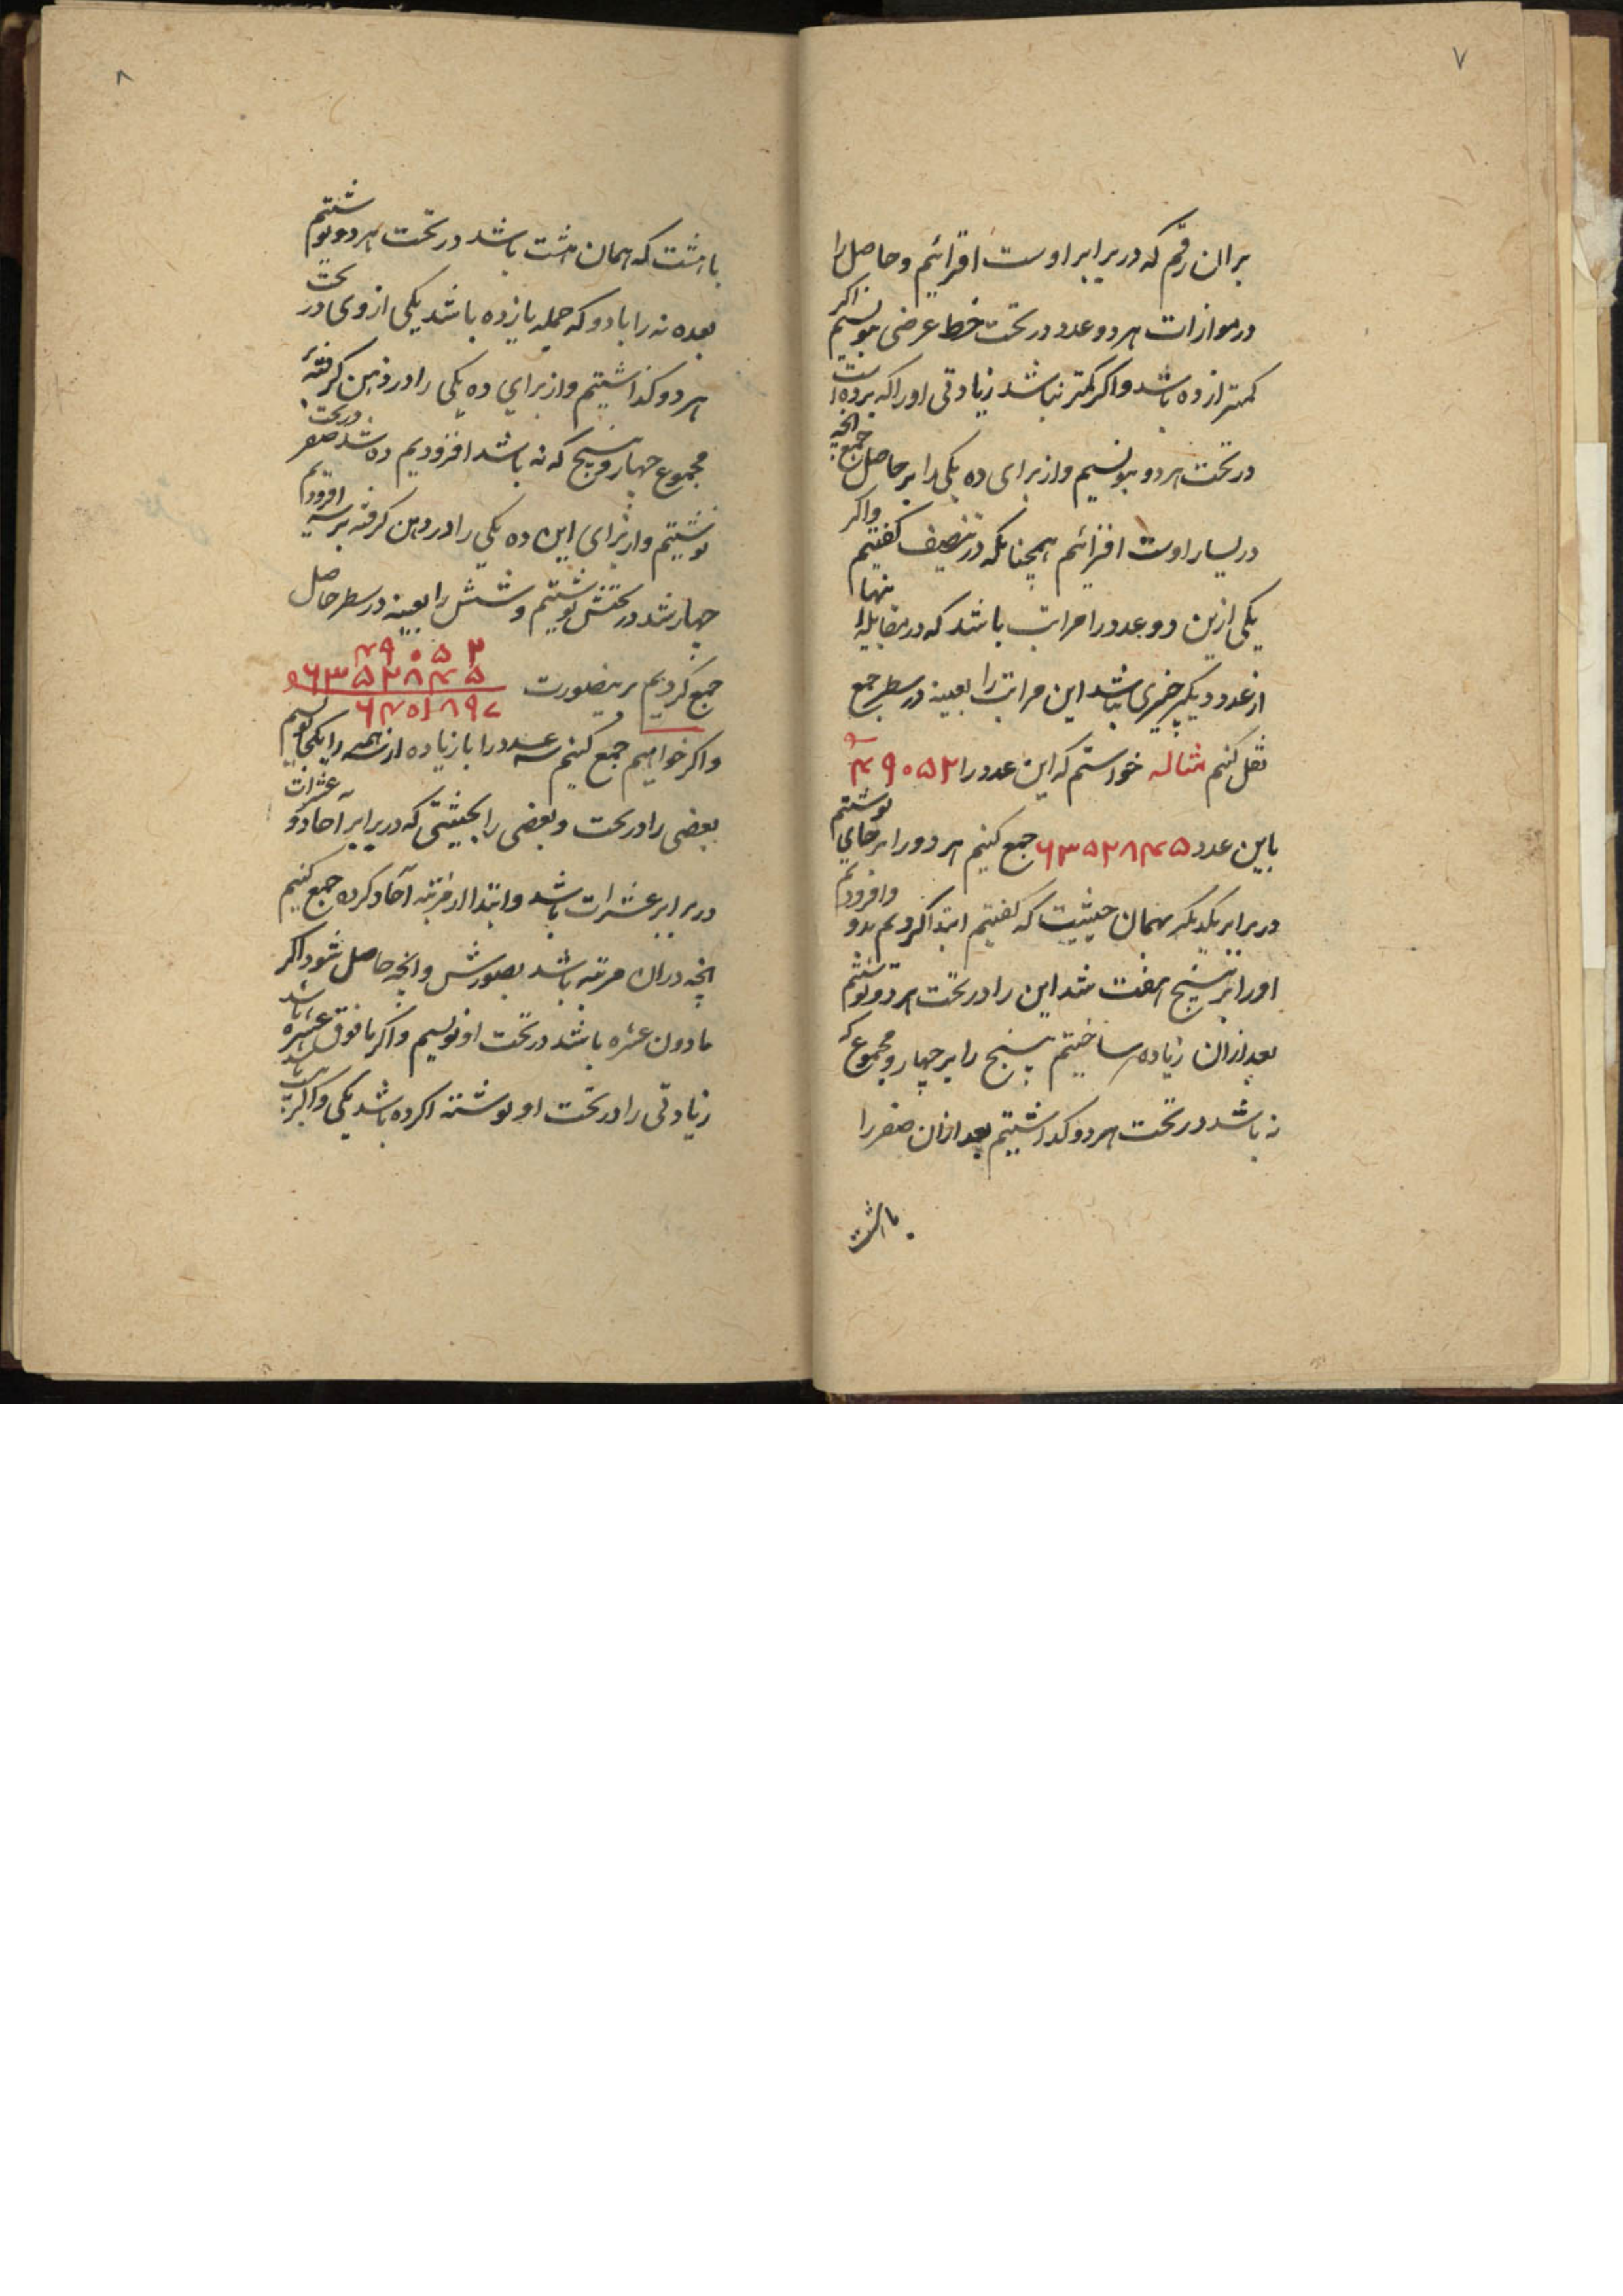 ۷
بران رقم که در برابر اوست افزائیم و حاصل را
در موازات هر دو عدد در تحت خط عرضی بنویسیم اکر
کمتر از ده باشد و اکر کمتر نباشد زیادتی او را که بر ده است
در تحت هر دو بنویسیم و از برای ده یکی را بر حاصل جمع انچه
در یسار اوست افزائیم همچنانکه در تنصیف کفتیم و اکر
یکی ازین دو عدد را مراتب باشد که در مقابله انها
از عدد دیکر چیزی نباشد این مراتب را بعینه در سطر جمع
نقل کنیم مثاله خواستم که این عدد را ۴۹۰۵۲
باین عدد ۶۳۵۲۸۴۵ جمع کنیم هر دو را بر جای نوشتیم
در برابر یکدیکر بهمان حیثیت که کفتیم ابتدا کردیم بدو و افزودیم
او را بر پنج هفت شد این را در تحت هر دو نوشتیم
بعد ازان زیاده ساختیم پنج را بر چهار و مجموع که
نه باشد در تحت هر دو کذاشتیم بعد ازان صفر را
با هشت
۸
با هشت که همان هشت باشد در تحت هر دو نوشتیم
بعده نه را با دو که جمله یازده باشد یکی از وی در تحت
هر دو کذاشتیم و از برای ده یکی را در ذهن کرفته بر
مجموع چهار و پنج که نه باشد افزودیم ده شد صفر در تحت
نوشتیم و از برای این ده یکی را در ذهن کرفته بر سه افزودیم
چهار شد در تحتش نوشتیم و شش را بعینه در سطر حاصل
۴۹۰۵۲
۶۳۵۲۸۴۵
جمع کردیم برینصورت ۶۴۰۱۸۹۷
و اکر خواهیم جمع کنیم سه عدد را با زیاده از همه را یکجا نویسیم
بعضی را در تحت و بعضی را بحیثیتی که در برابر احاد و عشرات
در برابر عشرات باشد و ابتدا از مرتبه آحاد کرده جمع کنیم
انچه دران مرتبه باشد بصورتش و انچه حاصل شود اکر
مادون عشره باشد در تحت او نویسیم و اکر مافوق عشره باشد
زیادتی را در تحت او نوشته اکر ده باشد یکی و اکر بیست باشد